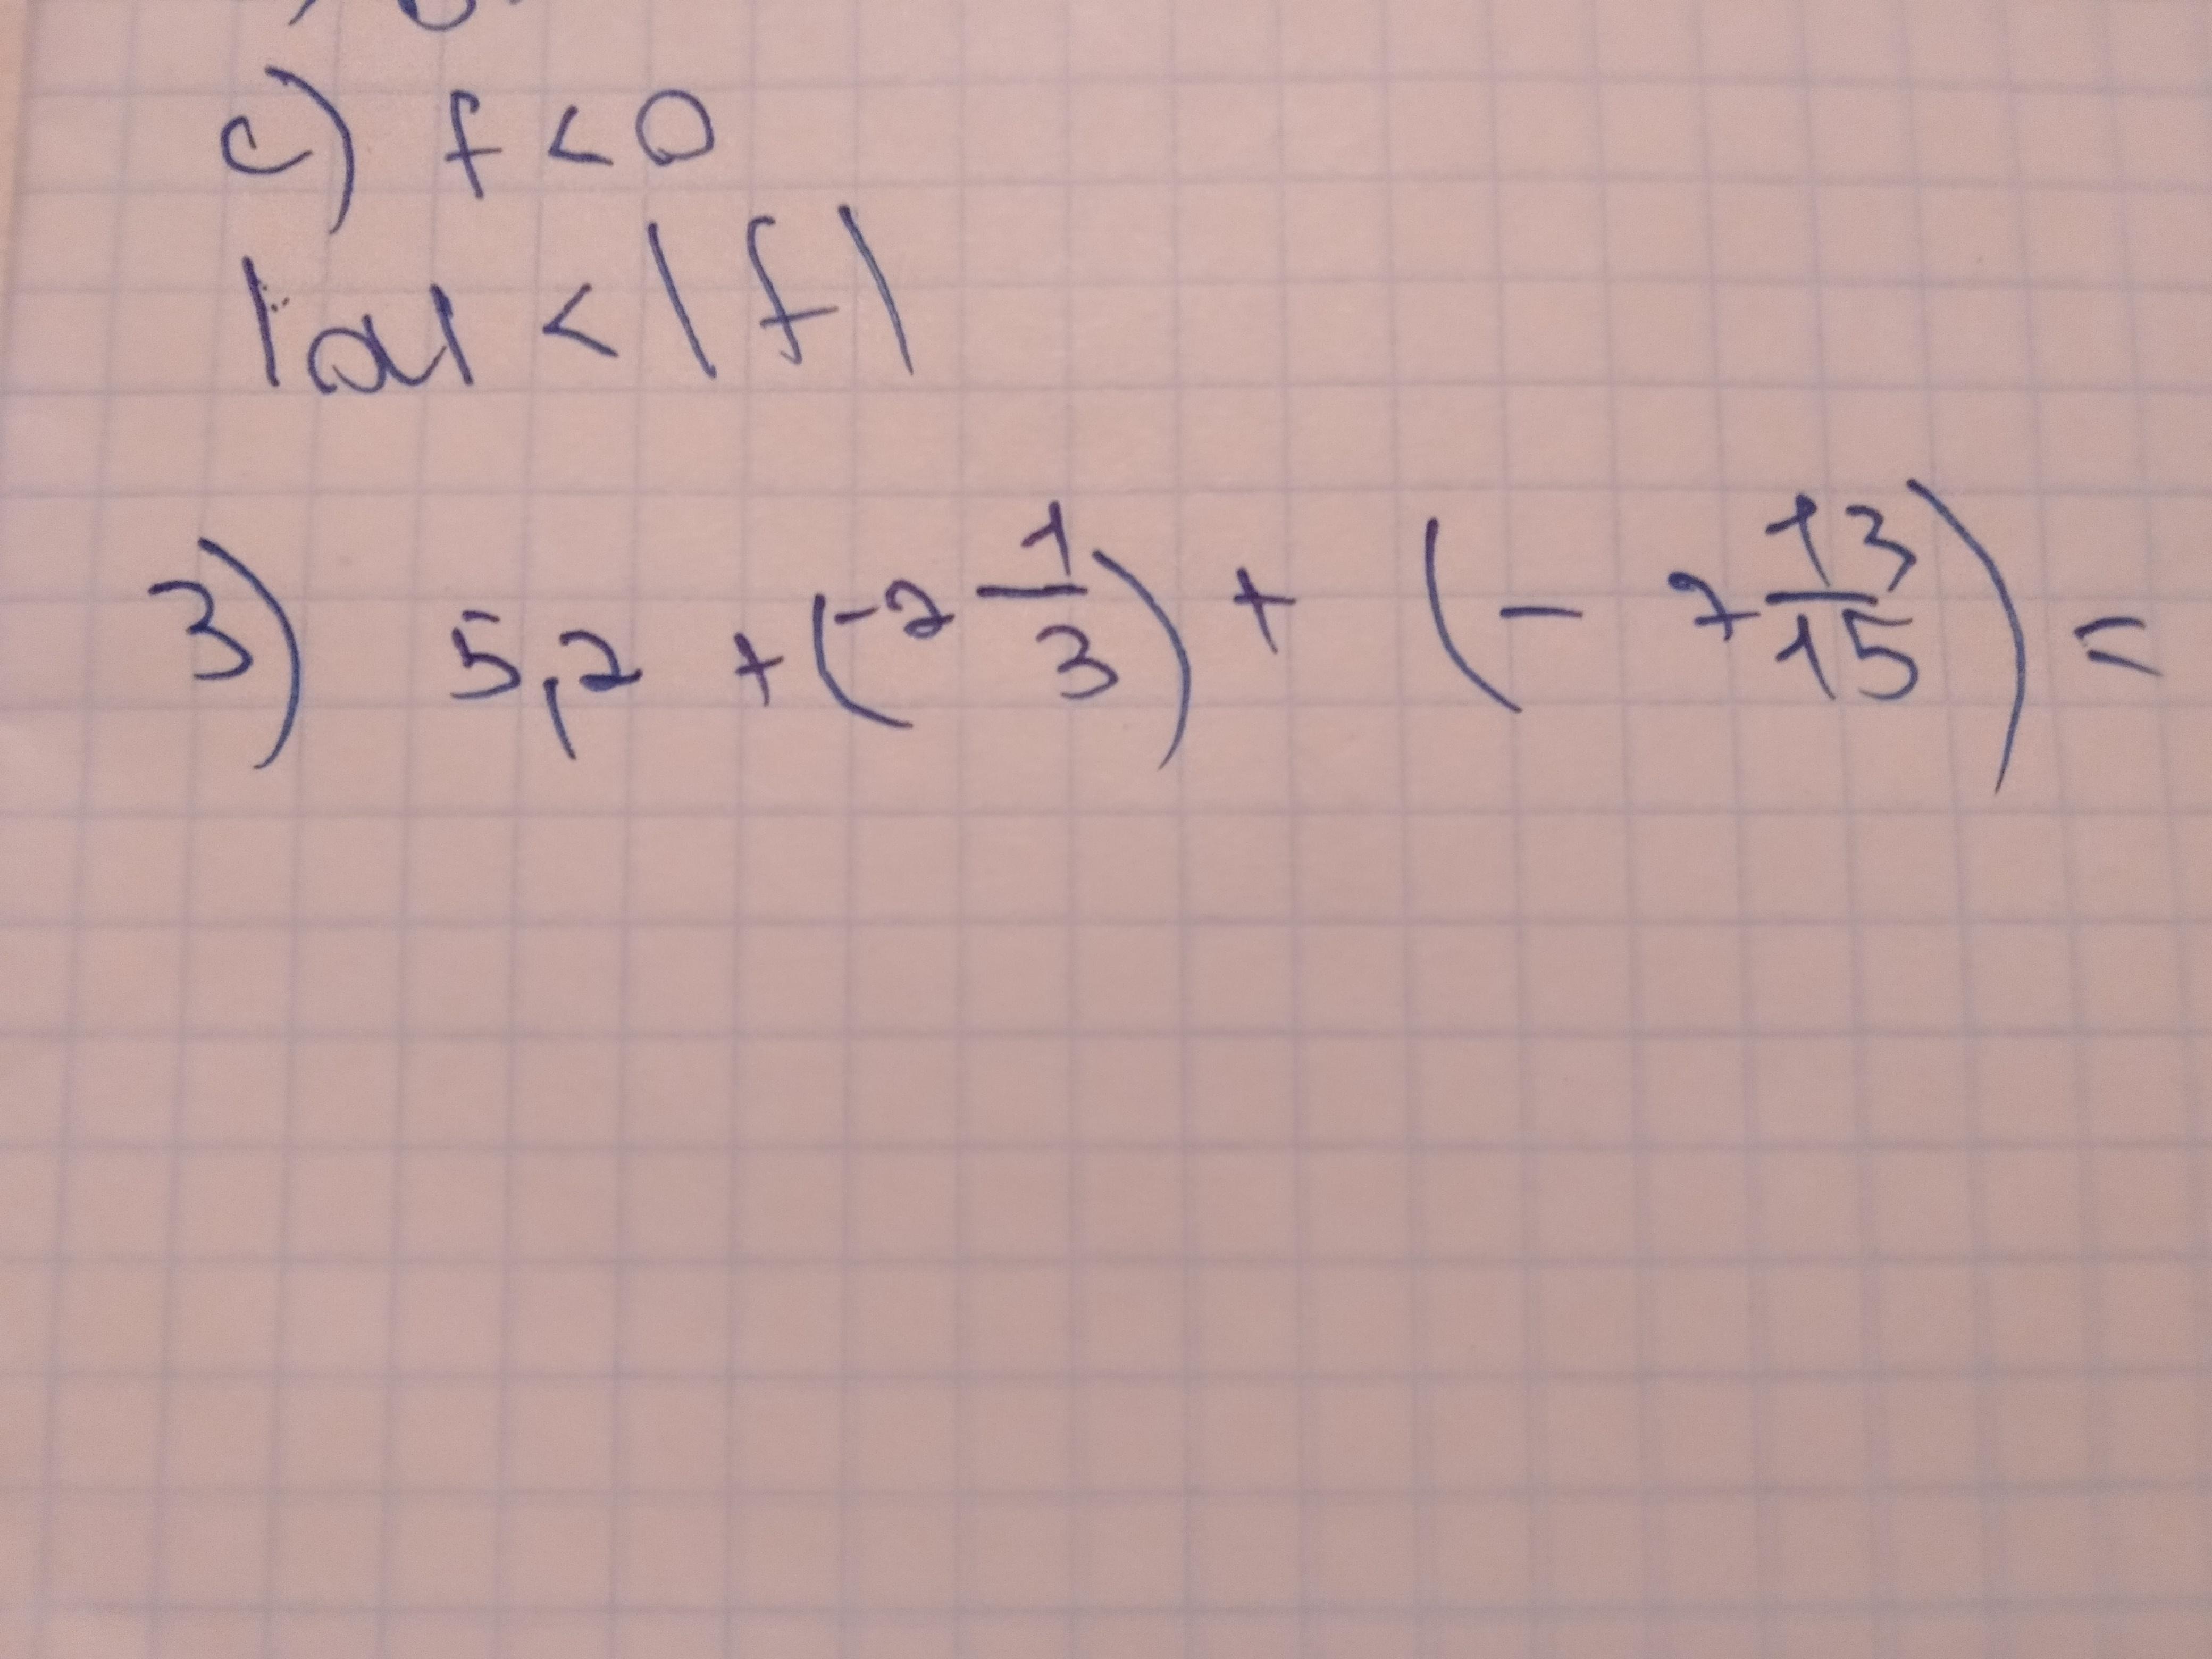 c) f < 0
|a| < |f|
3) 5,2 + (-2 1/3) + (- 7 13/15) =